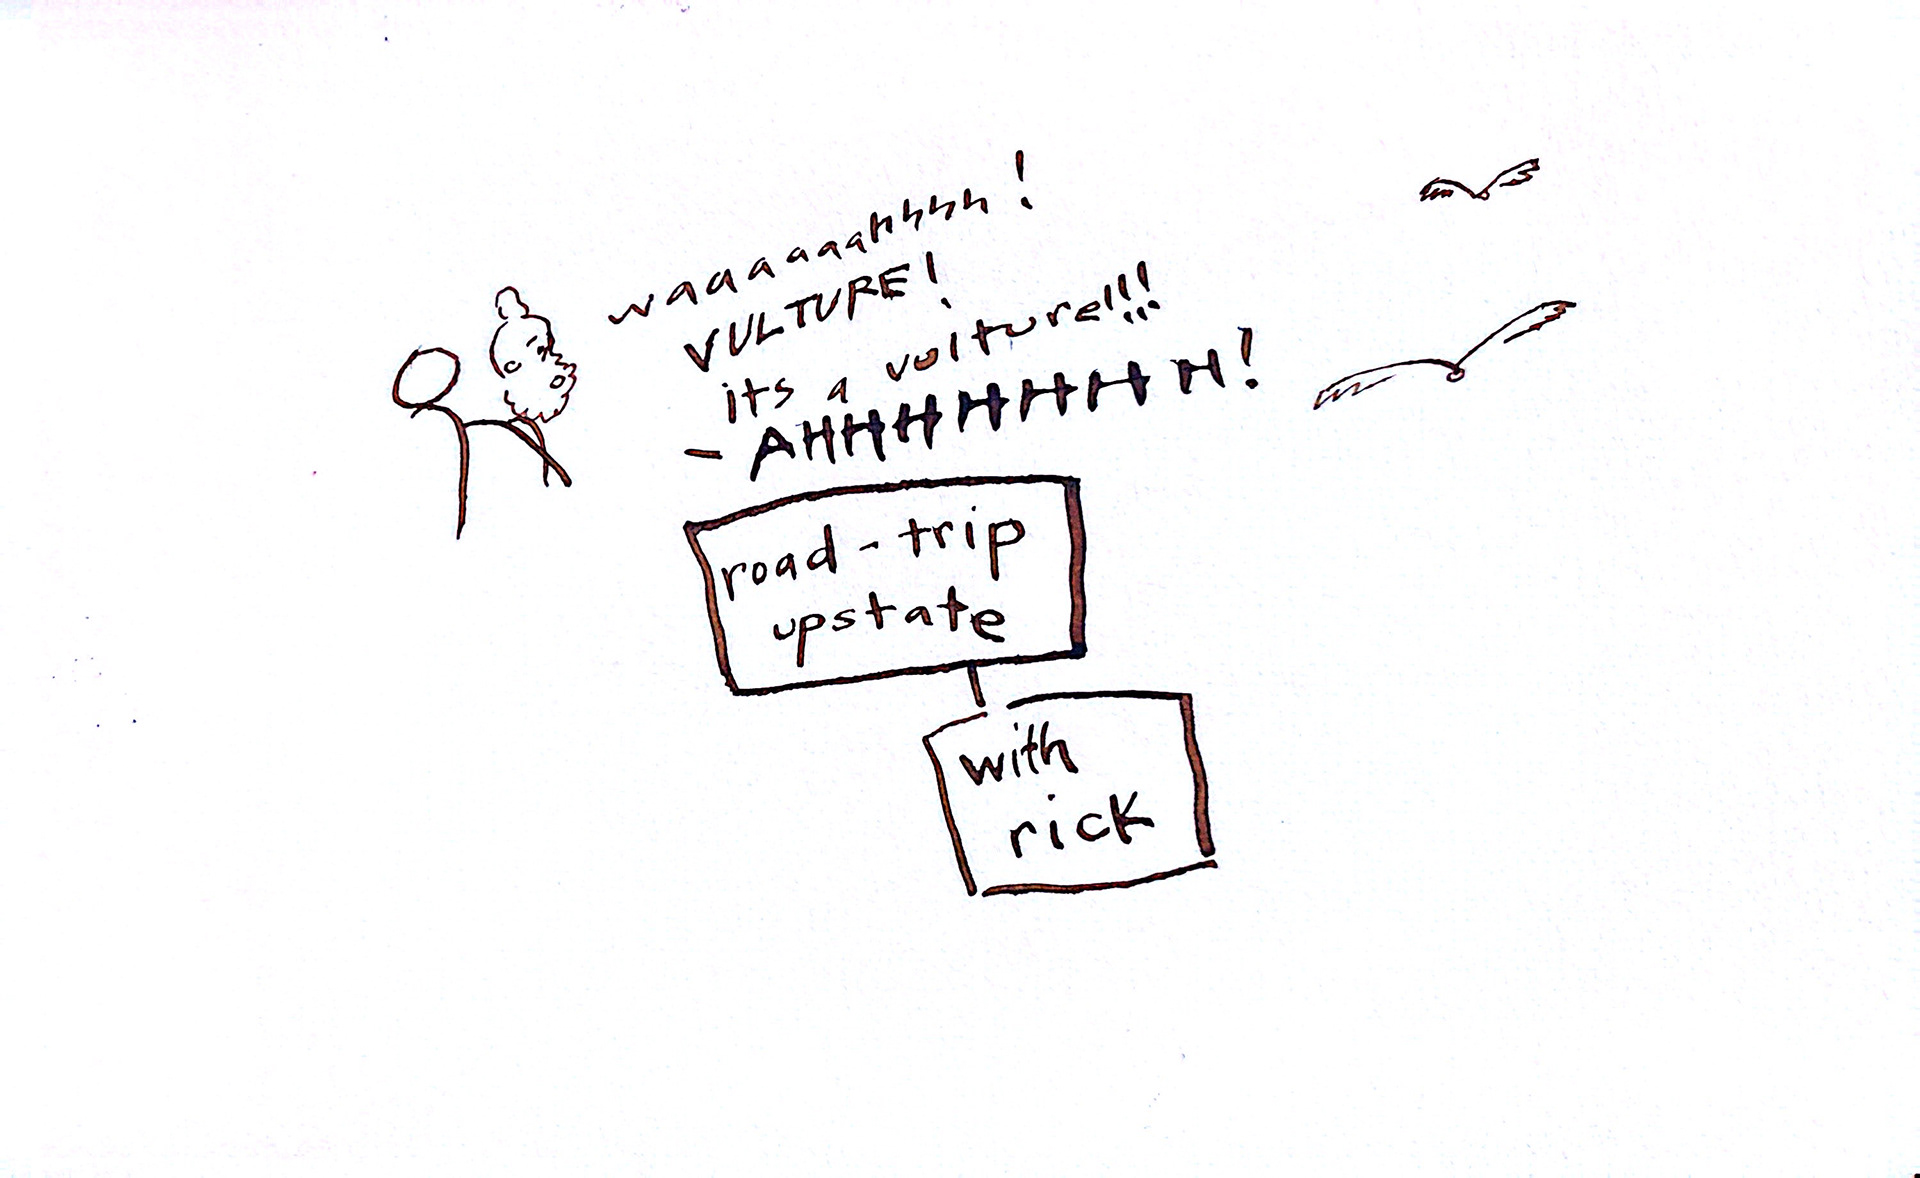 waaaaaahhhh!
VULTURE!
its a vulture!!!
- AHHHHHHHH!
road-trip
upstate
with
rick